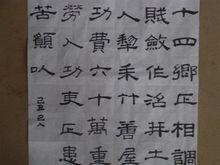 十四鄉正相調
賦斂作治并土
人犂耒艸蓐屋
功費六十萬重
勞人功吏正患
苦願以